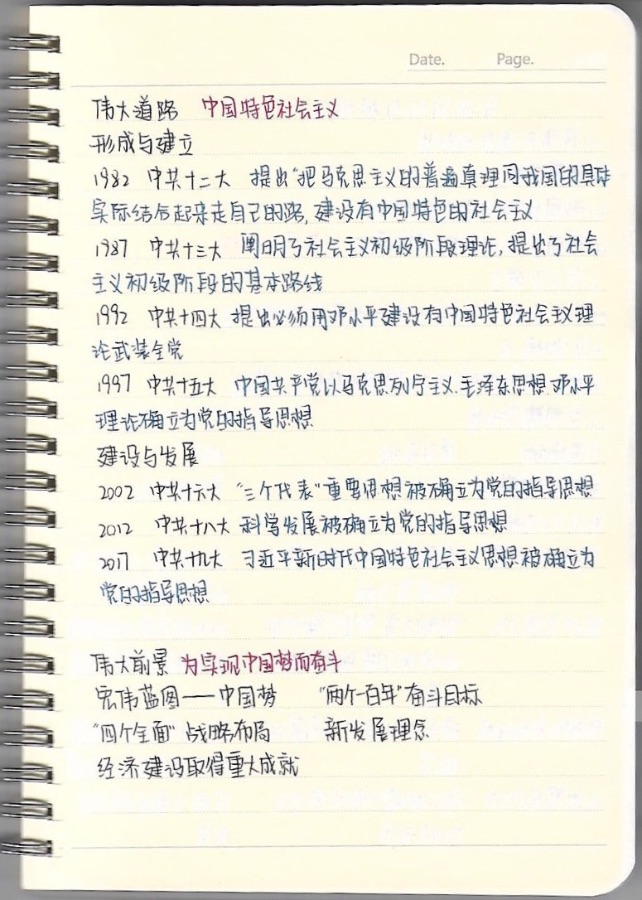 Date. Page.
伟大道路 中国特色社会主义
形成与建立
1982 中共十二大 提出"把马克思主义的普遍真理同我国的具体
实际结合起来走自己的路,建设有中国特色的社会主义
1987 中共十三大 阐明了社会主义初级阶段理论,提出了社会
主义初级阶段的基本路线
1992 中共十四大 提出必须用邓小平建设有中国特色社会主义理
论武装全党
1997 中共十五大 中国共产党以马克思列宁主义.毛泽东思想 邓小平
理论确立为党的指导思想
建设与发展
2002 中共十六大 "三个代表"重要思想被确立为党的指导思想
2012 中共十八大 科学发展被确立为党的指导思想
2017 中共十九大 习近平新时代中国特色社会主义思想被确立为
党的指导思想
伟大前景 为实现中国梦而奋斗
宏伟蓝图——中国梦 "两个一百年"奋斗目标
"四个全面"战略布局 新发展理念
经济建设取得重大成就